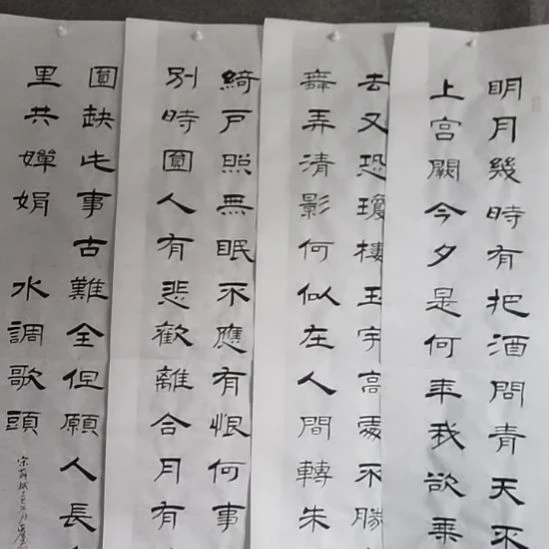 明月幾時有把酒問青天不
上宮闕今夕是何年我欲乘
去又恐瓊樓玉宇高處不勝
舞弄清影何似在人間轉朱
綺戶照無眠不應有恨何事
別時圓人有悲歡離合月有
圓缺此事古難全但願人長
里共嬋娟
水調歌頭
宋蘇軾